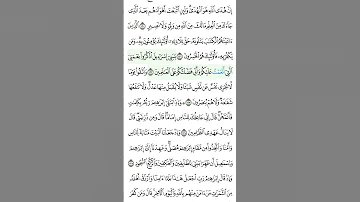 إِنَّ هُدَى ٱللَّهِ هُوَ ٱلْهُدَىٰ وَلَئِنِ ٱتَّبَعْتَ أَهْوَآءَهُم بَعْدَ ٱلَّذِى
جَآءَكَ مِنَ ٱلْعِلْمِ مَا لَكَ مِنَ ٱللَّهِ مِن وَلِىٍّ وَلَا نَصِيرٍ ١٢٠ ٱلَّذِينَ
ءَاتَيْنَٰهُمُ ٱلْكِتَٰبَ يَتْلُونَهُۥ حَقَّ تِلَاوَتِهِۦٓ أُو۟لَٰٓئِكَ يُؤْمِنُونَ بِهِۦ وَمَن
يَكْفُرْ بِهِۦ فَأُو۟لَٰٓئِكَ هُمُ ٱلْخَٰسِرُونَ ١٢١ يَٰبَنِىٓ إِسْرَٰٓءِيلَ ٱذْكُرُوا۟ نِعْمَتِىَ
ٱلَّتِىٓ أَنْعَمْتُ عَلَيْكُمْ وَأَنِّى فَضَّلْتُكُمْ عَلَى ٱلْعَٰلَمِينَ ١٢٢ وَٱتَّقُوا۟ يَوْمًا
لَّا تَجْزِى نَفْسٌ عَن نَّفْسٍ شَيْـًٔا وَلَا يُقْبَلُ مِنْهَا عَدْلٌ وَلَا تَنفَعُهَا
شَفَٰعَةٌ وَلَا هُمْ يُنصَرُونَ ١٢٣ وَإِذِ ٱبْتَلَىٰٓ إِبْرَٰهِۦمَ رَبُّهُۥ بِكَلِمَٰتٍ
فَأَتَمَّهُنَّ قَالَ إِنِّى جَاعِلُكَ لِلنَّاسِ إِمَامًا قَالَ وَمِن ذُرِّيَّتِى قَالَ
لَا يَنَالُ عَهْدِى ٱلظَّٰلِمِينَ ١٢٤ وَإِذْ جَعَلْنَا ٱلْبَيْتَ مَثَابَةً لِّلنَّاسِ
وَأَمْنًا وَٱتَّخِذُوا۟ مِن مَّقَامِ إِبْرَٰهِۦمَ مُصَلًّى وَعَهِدْنَآ إِلَىٰٓ إِبْرَٰهِۦمَ
وَإِسْمَٰعِيلَ أَن طَهِّرَا بَيْتِىَ لِلطَّآئِفِينَ وَٱلْعَٰكِفِينَ وَٱلرُّكَّعِ ٱلسُّجُودِ ١٢٥
وَإِذْ قَالَ إِبْرَٰهِۦمُ رَبِّ ٱجْعَلْ هَٰذَا بَلَدًا ءَامِنًا وَٱرْزُقْ أَهْلَهُۥ
مِنَ ٱلثَّمَرَٰتِ مَنْ ءَامَنَ مِنْهُم بِٱللَّهِ وَٱلْيَوْمِ ٱلْءَاخِرِ قَالَ وَمَن كَفَرَ